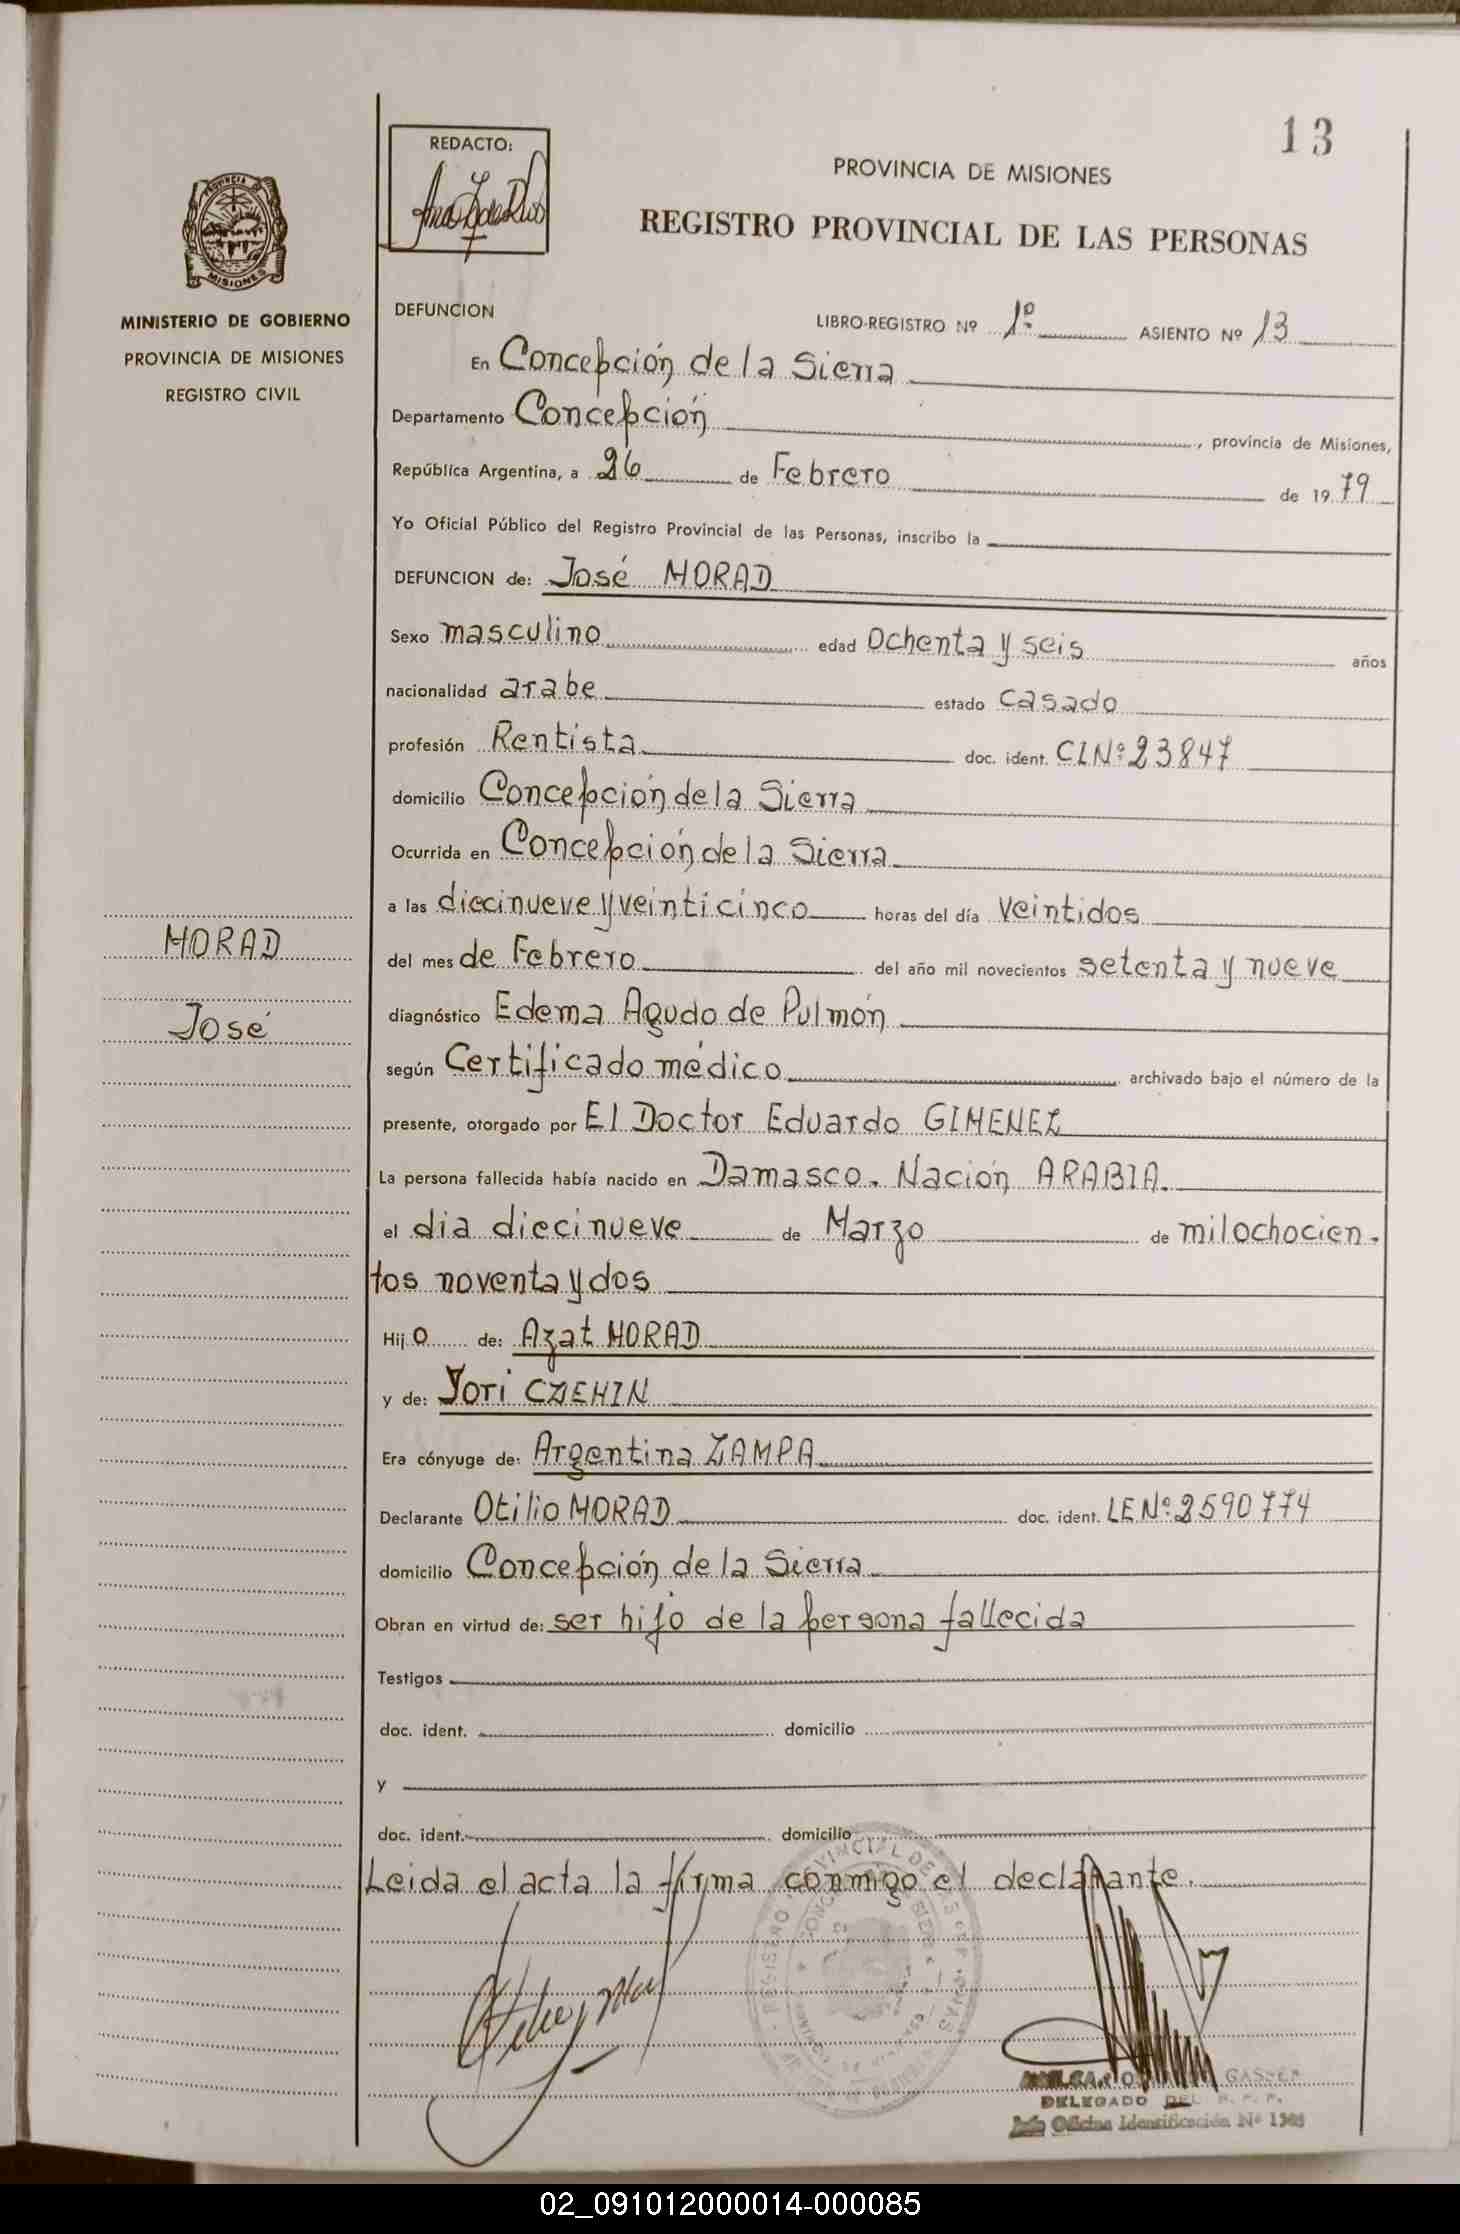 13
REDACTO:
PROVINCIA DE MISIONES
REGISTRO PROVINCIAL DE LAS PERSONAS
MINISTERIO DE GOBIERNO
PROVINCIA DE MISIONES
REGISTRO CIVIL
DEFUNCION
LIBRO-REGISTRO Nº 1º ASIENTO Nº 13
En Concepción de la Sierra
Departamento Concepción, provincia de Misiones,
República Argentina, a 26 de Febrero de 1979
Yo Oficial Público del Registro Provincial de las Personas, inscribo la
DEFUNCION de: José MORAD
Sexo masculino edad Ochenta y seis años
nacionalidad arabe estado casado
profesión Rentista doc. ident. CI Nº 23847
domicilio Concepción de la Sierra
Ocurrida en Concepción de la Sierra
a las diecinueve y veinticinco horas del día veintidos
del mes de Febrero del año mil novecientos setenta y nueve
MORAD
José
diagnóstico Edema Agudo de Pulmón
según Certificado médico archivado bajo el número de la
presente, otorgado por El Doctor Eduardo GIMENEZ
La persona fallecida había nacido en Damasco. Nación ARABIA.
el dia diecinueve de Marzo de milochocien.
tos noventa y dos
Hijo de: Azat MORAD
y de: Yori CZEHIN
Era cónyuge de: Argentina ZAMPA
Declarante Otilio MORAD doc. ident. LE Nº 2590774
domicilio Concepción de la Sierra
Obran en virtud de: ser hijo de la persona fallecida
Testigos
doc. ident. domicilio
y
doc. ident. domicilio
Leida el acta la firma conmigo el declarante.
DELEGADO DEL R. P. P.
Jefe Oficina Identificación Nº 1308
02_091012000014-000085